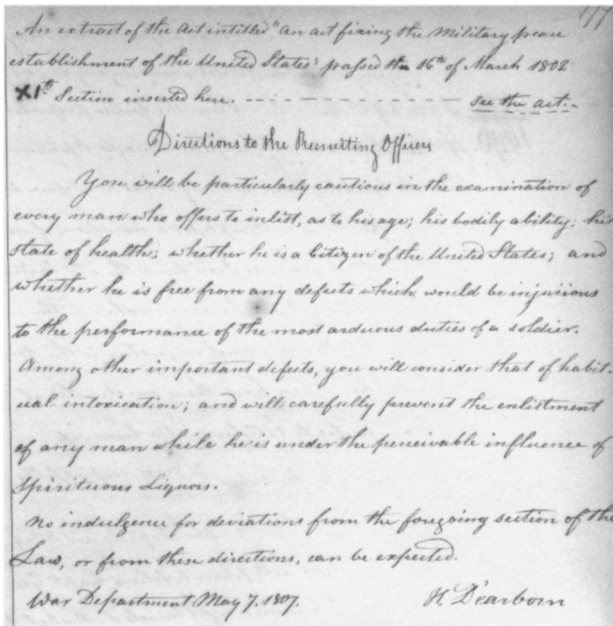 An extract of the Act intitled "an act fixing the Military peace
establishment of the United States" passed the 16th of March 1802
XIth Section inserted here. - - - - - - - - - see the act. -
Directions to the Recruiting Officers
You will be particularly cautious in the examination of
every man who offers to inlist, as to his age; his bodily ability; his
state of health; whether he is a Citizen of the United States; and
whether he is free from any defects which would be injurious
to the performance of the most arduous duties of a soldier.
Among other important defects, you will consider that of habit-
ual intoxication; and will carefully prevent the enlistment
of any man while he is under the perceivable influence of
Spirituous Liquors.
No indulgence for deviations from the foregoing section of the
Law, or from these directions, can be expected.
War Department May 7. 1807.
H. Dearborn